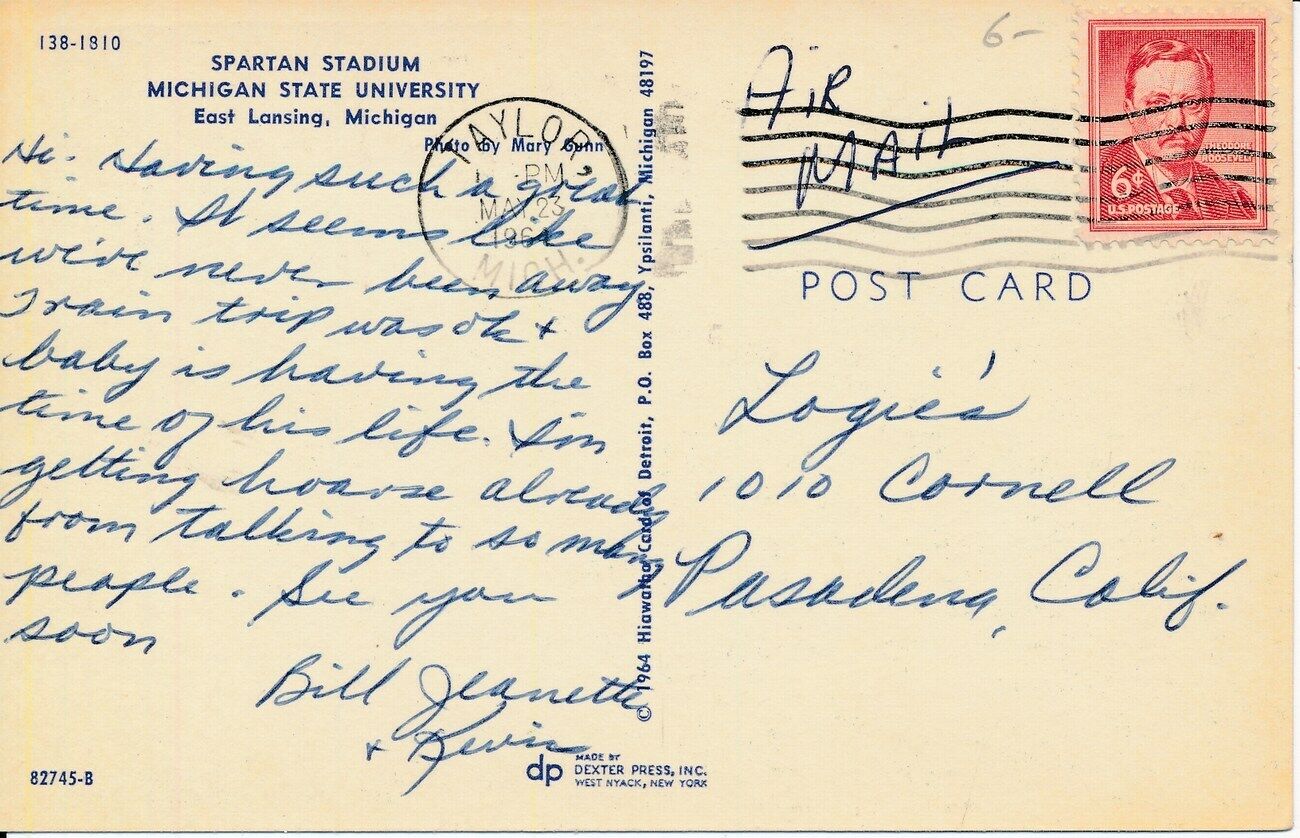 138-1810
SPARTAN STADIUM
MICHIGAN STATE UNIVERSITY
East Lansing, Michigan
Photo by Mary Gunn
Hi- Having such a great
time. It seems like
we've never been away
Train trip was ok +
baby is having the
time of his life. I'm
getting hoarse already
from talking to so many
people. See you
soon
Bill Jeanette
+ Kevin
82745-B
TAYLOR,
PM
MAY 23
MICH.
© 1964 Hiawatha Card of Detroit, P.O. Box 488, Ypsilanti, Michigan 48197
dp MADE BY
DEXTER PRESS, INC.
WEST NYACK, NEW YORK
6-
AIR
MAIL
THEODORE
ROOSEVELT
6¢
U.S. POSTAGE
POST CARD
Logie's
1010 Cornell
Pasadena, Calif.